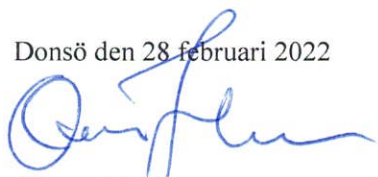 Donsö den 28 februari 2022